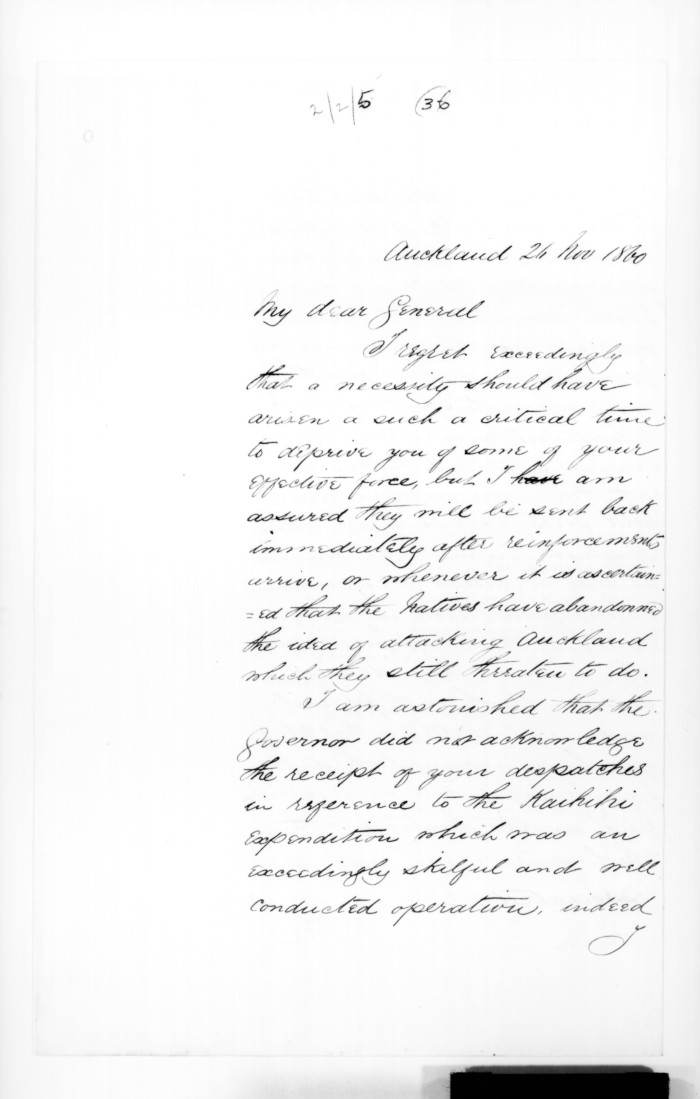 2/2/5 (36
Auckland 26 Nov 1860
My dear General
I regret exceedingly
that a necessity should have
arisen a such a critical time
to deprive you of some of your
effective force, but I have am
assured they will be sent back
immediately after reinforcements
arrive, or whenever it is ascertain=
=ed that the Natives have abandonned
the idea of attacking Auckland
which they still threaten to do.
I am astonished that the
Governor did not acknowledge
the receipt of your despatches
in reference to the Kaihihi
Expendition which was an
exceedingly skilful and well
conducted operation, indeed
I